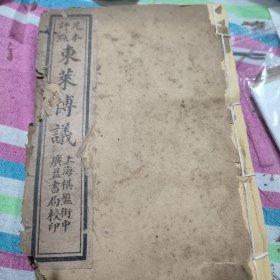 評點
東萊博議
上海棋盤街中
廣益書局校印